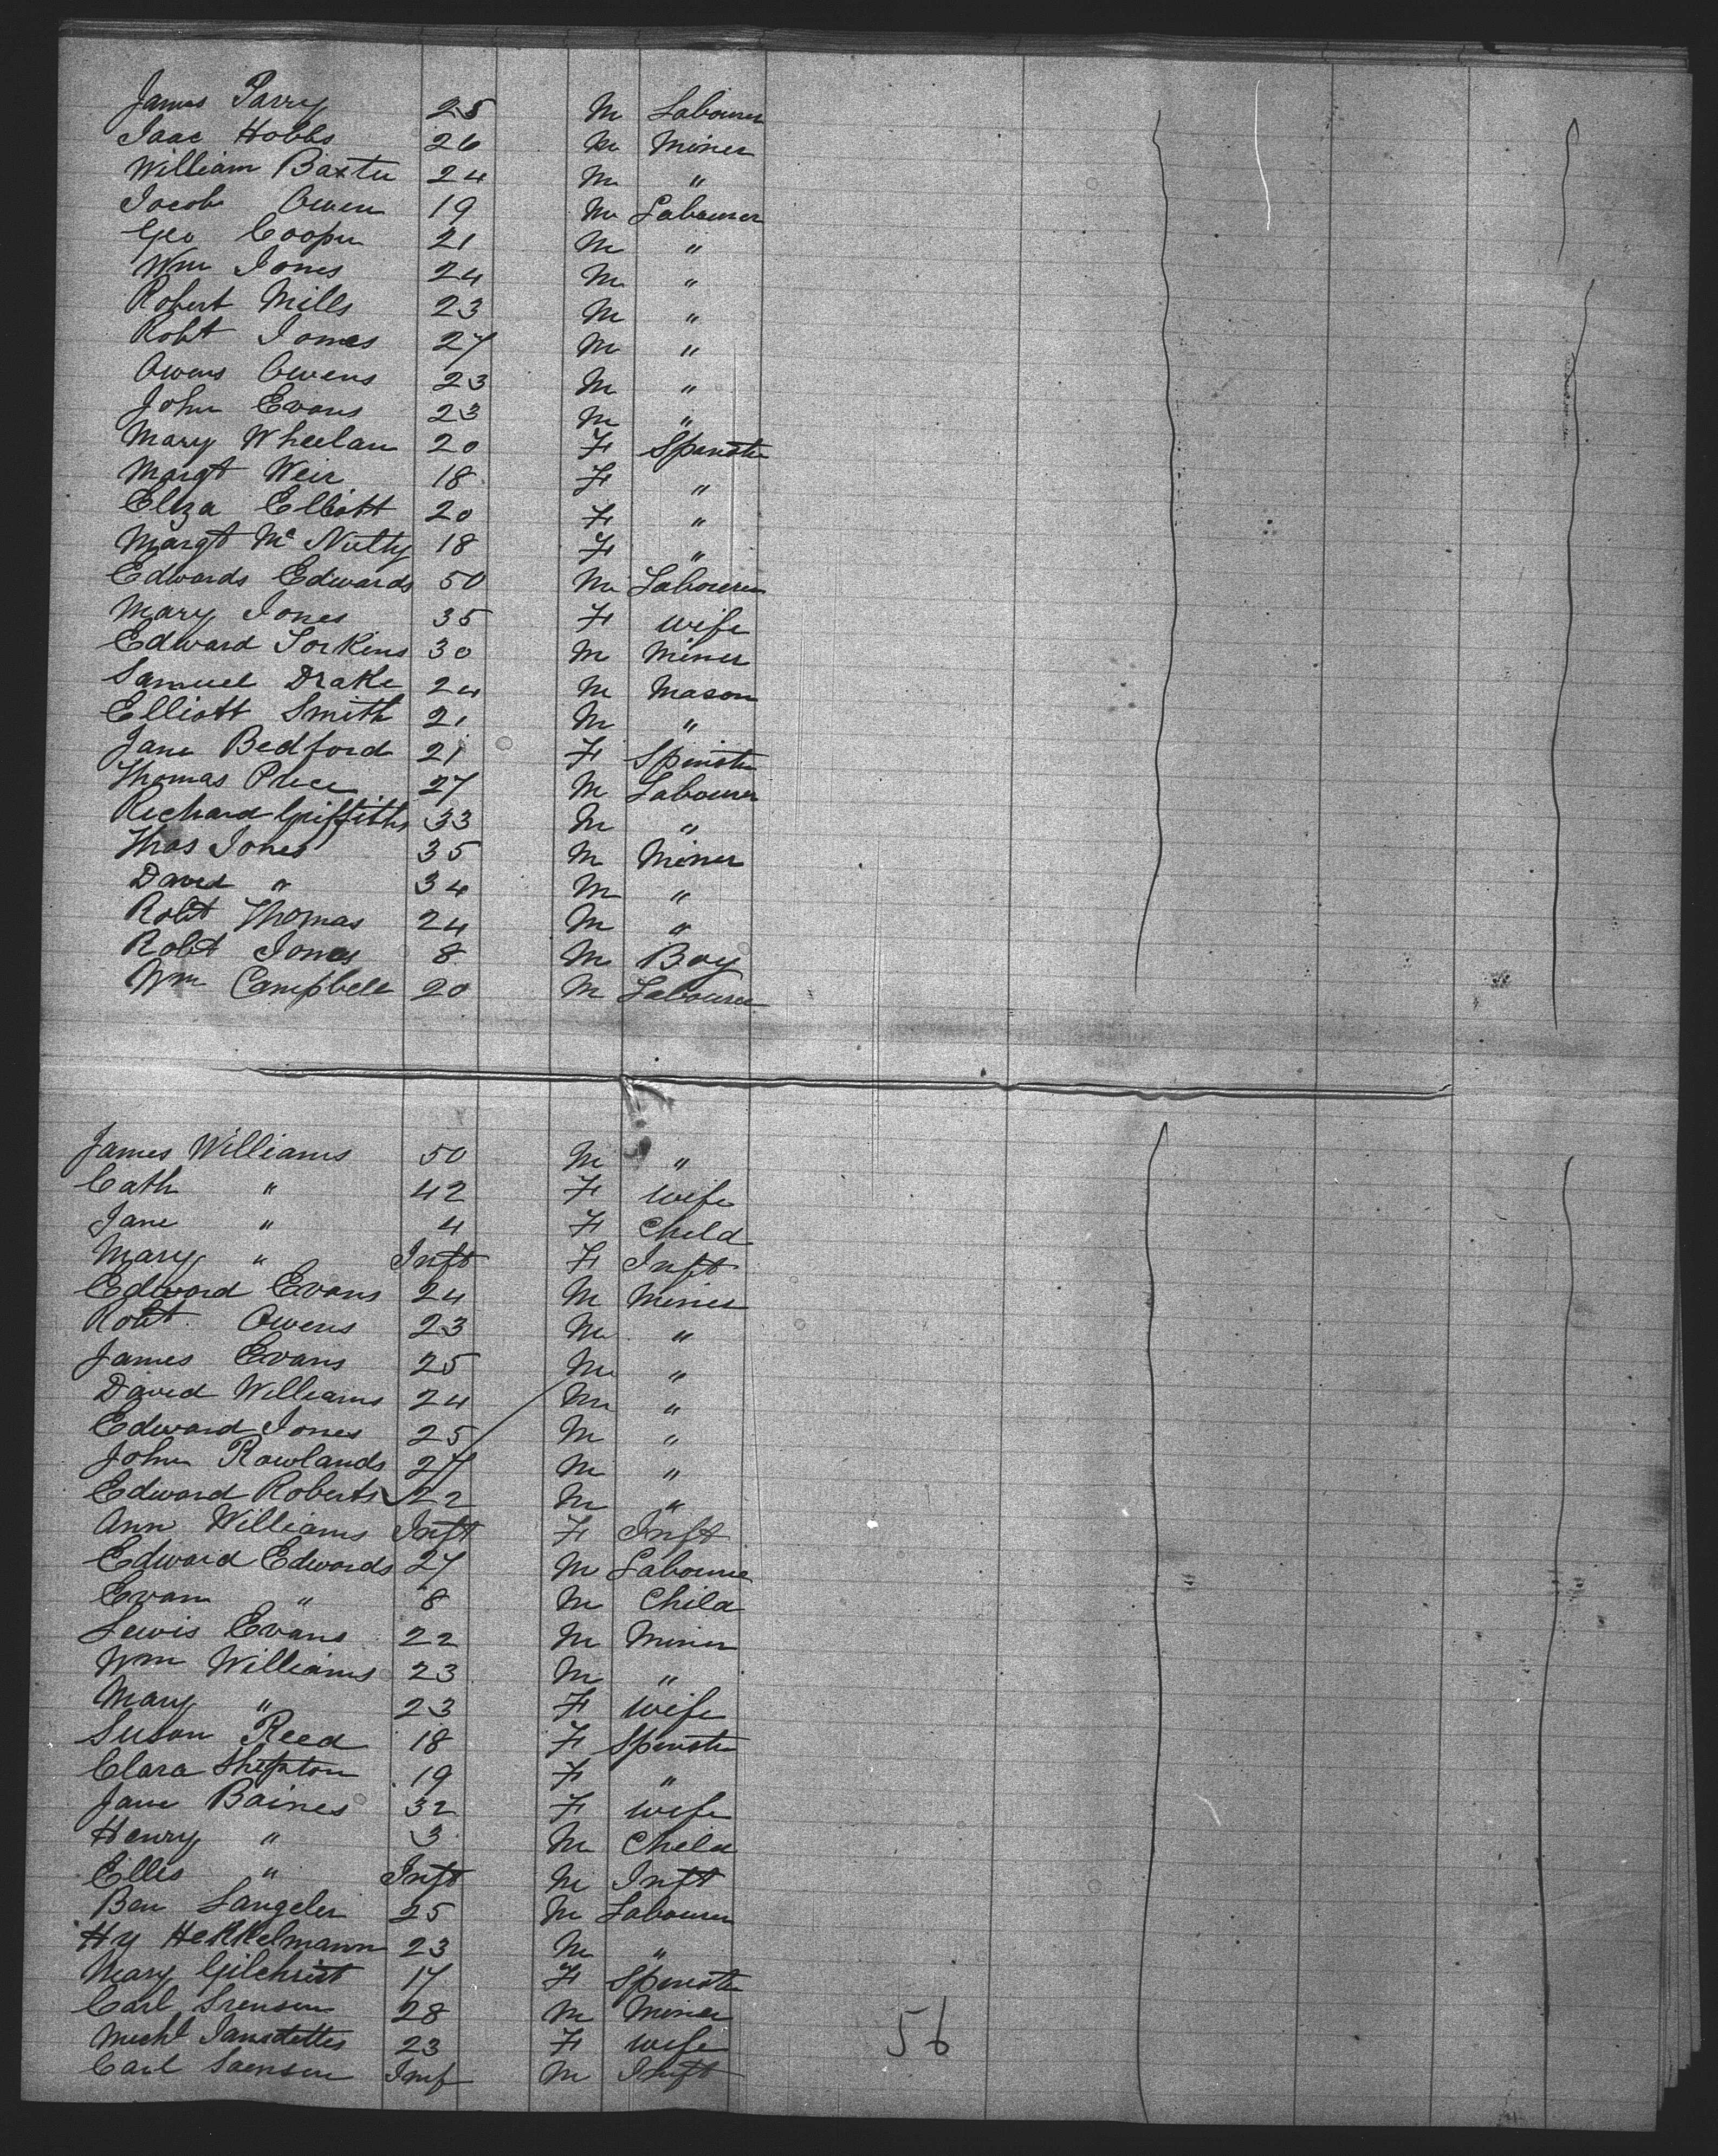 James Parry 25 M Labourer
Isaac Hobbs 26 M Miner
William Baxter 24 M "
Jacob Owen 19 M Labourer
Geo Cooper 21 M "
Wm Jones 24 M "
Robert Mills 23 M "
Robt Jones 27 M "
Owens Owens 23 M "
John Evans 23 M "
Mary Wheelan 20 F Spinster
Margt Weir 18 F "
Eliza Elliott 20 F "
Margt Mc Nulty 18 F "
Edwards Edwards 50 M Labourer
Mary Jones 35 F Wife
Edward 30 M Miner
Samuel Drake 24 M Mason
Elliott Smith 21 M "
Jane Bedford 21 F Spinster
Thomas Price 27 M Labourer
Richard Griffiths 33 M "
Thos Jones 35 M Miner
David " 34 M "
Robt Thomas 24 M "
Robt Jones 8 M Boy
Wm Campbell 20 M Labourer
James Williams 50 M "
Cath " 42 F Wife
Jane " 4 F Child
Mary " Inft F Inft
Edward Evans 24 M Miner
Robt Owens 23 M "
James Evans 25 M "
David Williams 24 M "
Edward Jones 25 M "
John Rowlands 27 M "
Edward Roberts 22 M "
Ann Williams Inft F Inft
Edward Edwards 27 M Labourer
Evan " 8 M Child
Lewis Evans 22 M Miner
Wm Williams 23 M "
Mary " 23 F Wife
Susan Reed 18 F Spinster
Clara Shepton 19 F "
Jane Baines 32 F Wife
Henry " 3 M Child
Ellis " Inft M Inft
Ben Langeler 25 M Labourer
Hy Hekkelmann 23 M "
Mary Gilchrist 17 F Spinster
Carl 28 M Miner
23 F Wife
Carl Inf M Inft
56